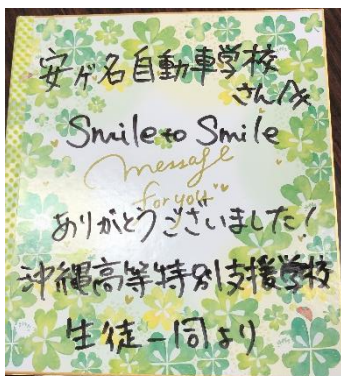 安ゲ名自動車学校
さんへ
Smile to Smile
message
for you
ありがとうございました!
沖縄高等特別支援学校
生徒一同より